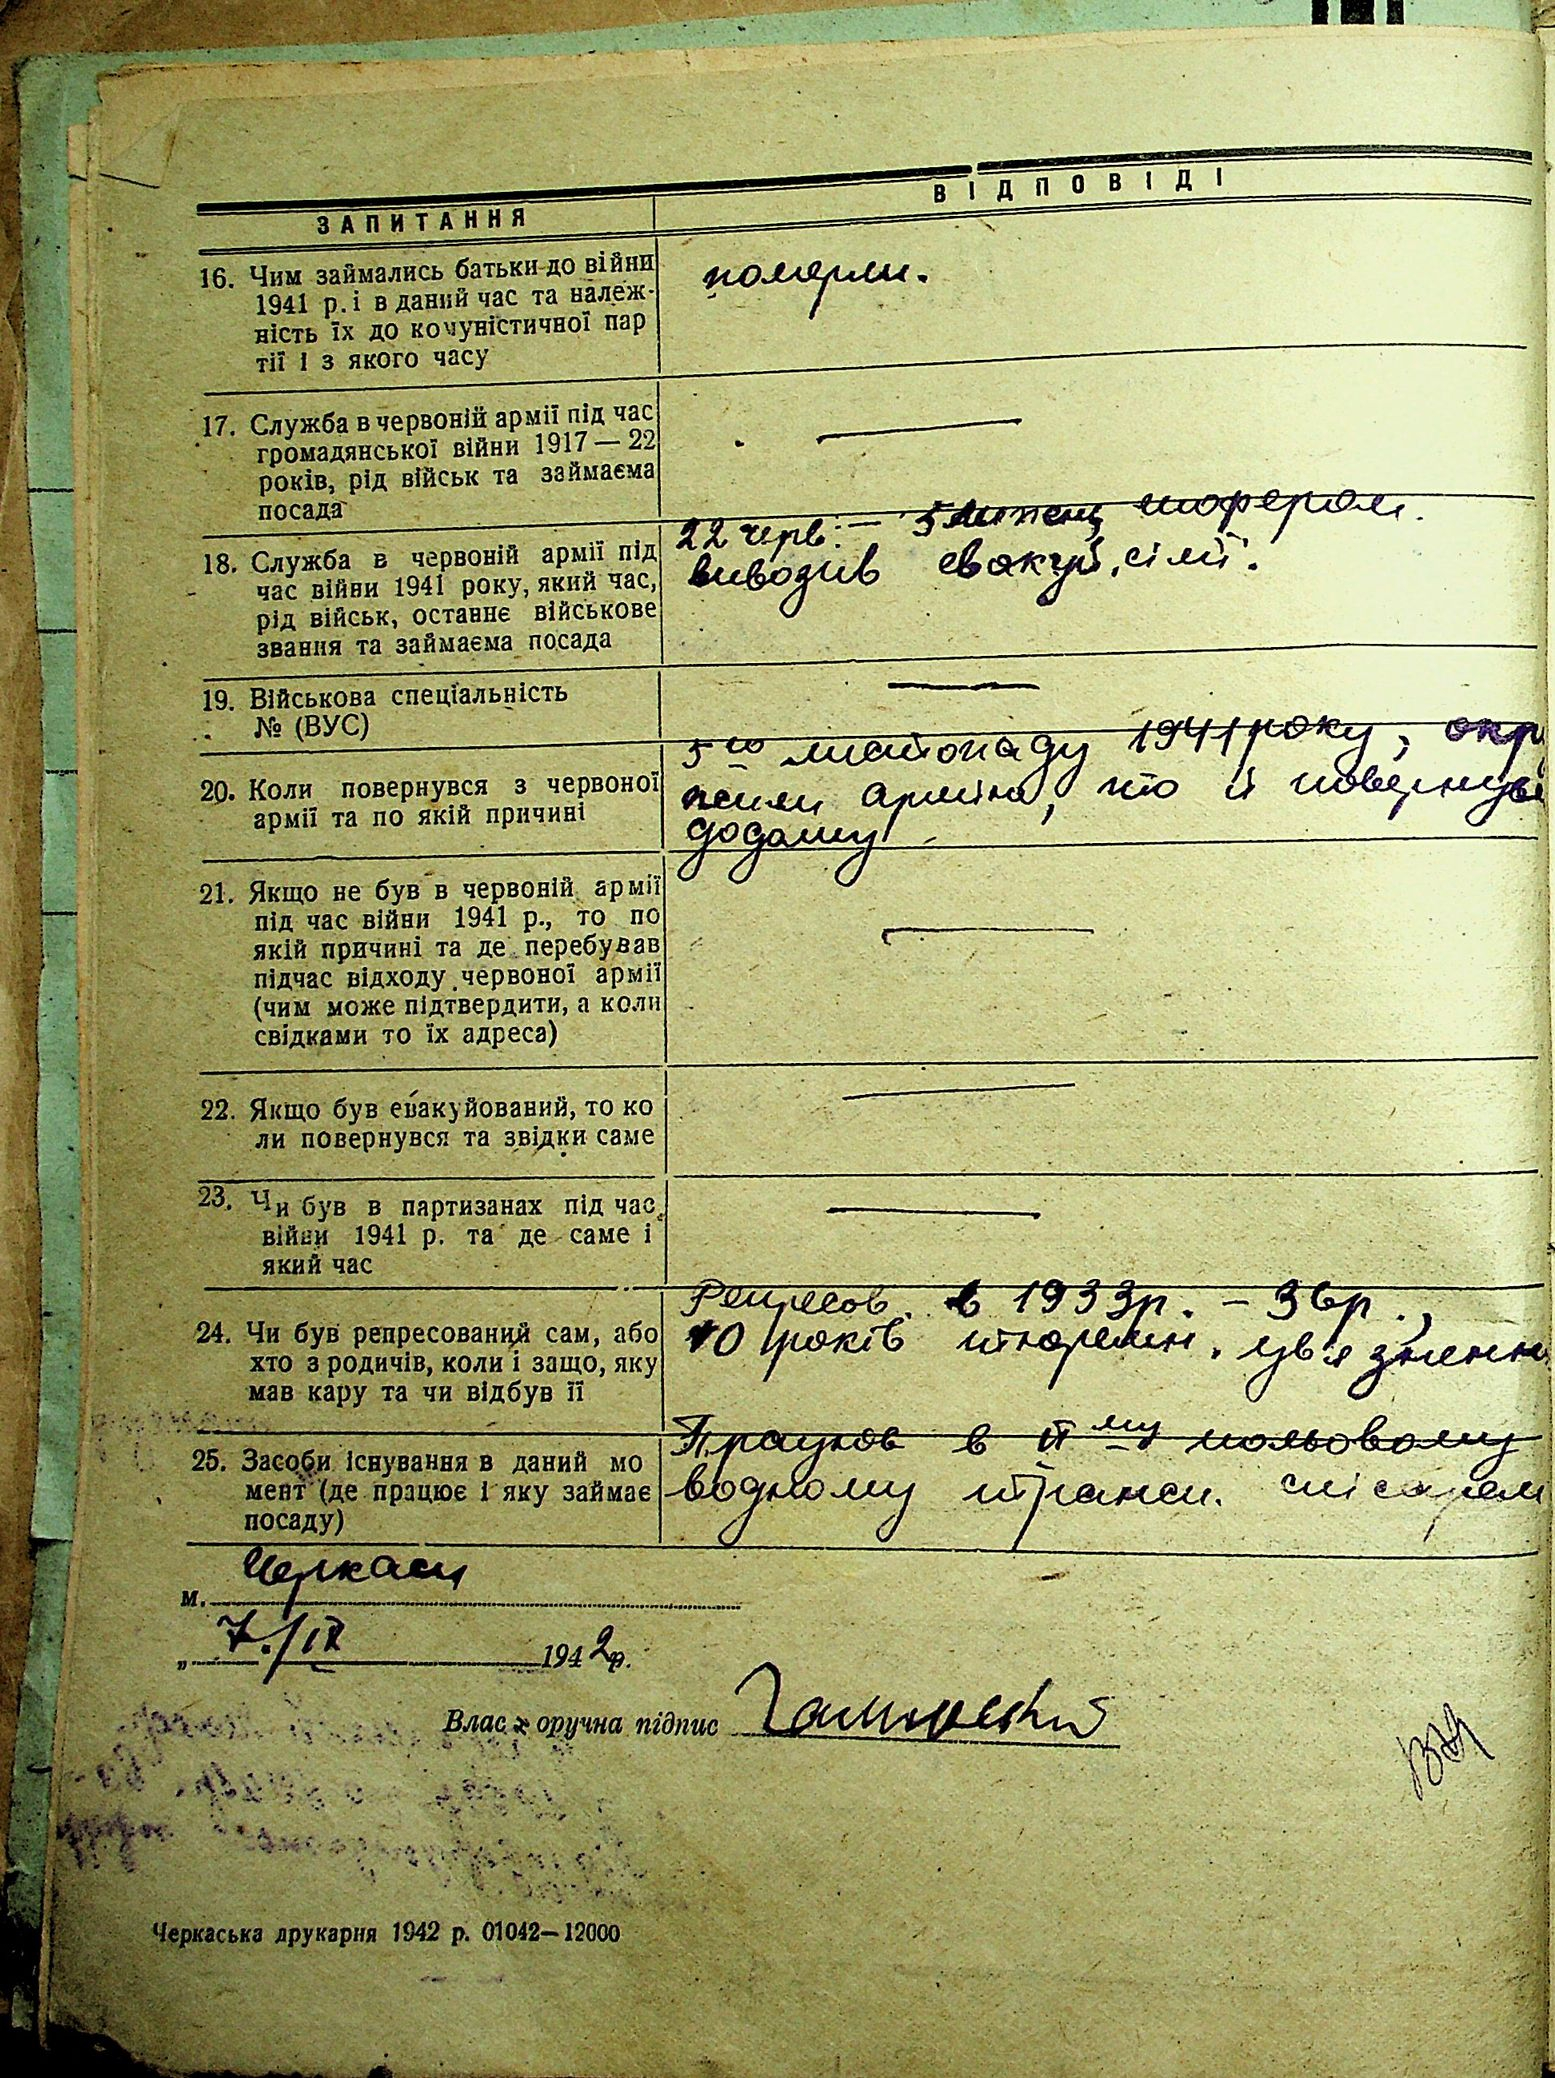 ЗАПИТАННЯ
ВІДПОВІДІ
16. Чим займались батьки до війни
1941 р. і в даний час та належ-
ність їх до комуністичної пар
тії і з якого часу
померли.
17. Служба в червоній армії під час
громадянської війни 1917 — 22
років, рід військ та займаєма
посада
18. Служба в червоній армії під
час війни 1941 року, який час,
рід військ, останнє військове
звання та займаєма посада
22 черв. — 5 шофером.
вивозив евакуй. сімї.
19. Військова спеціальність
№ (ВУС)
20. Коли повернувся з червоної
армії та по якій причині
5го листопаду 1941 року, окру
жили армію, що й повернувс
додому
21. Якщо не був в червоній армії
під час війни 1941 р., то по
якій причині та де перебував
підчас відходу червоної армії
(чим може підтвердити, а коли
свідками то їх адреса)
22. Якщо був евакуйований, то ко
ли повернувся та звідки саме
23. Чи був в партизанах під час
війни 1941 р. та де саме і
який час
24. Чи був репресований сам, або
хто з родичів, коли і защо, яку
мав кару та чи відбув її
Репресов. в 1933р. – 36р.,
10 років тюремн. ув'язненн
25. Засоби існування в даний мо
мент (де працює і яку займає
посаду)
Працюв в II му польовому
водному трансп. слісарем
м. Черкаси
„ 7./IX 1942р.
Власноручна підпис
Черкаська друкарня 1942 р. 01042—12000